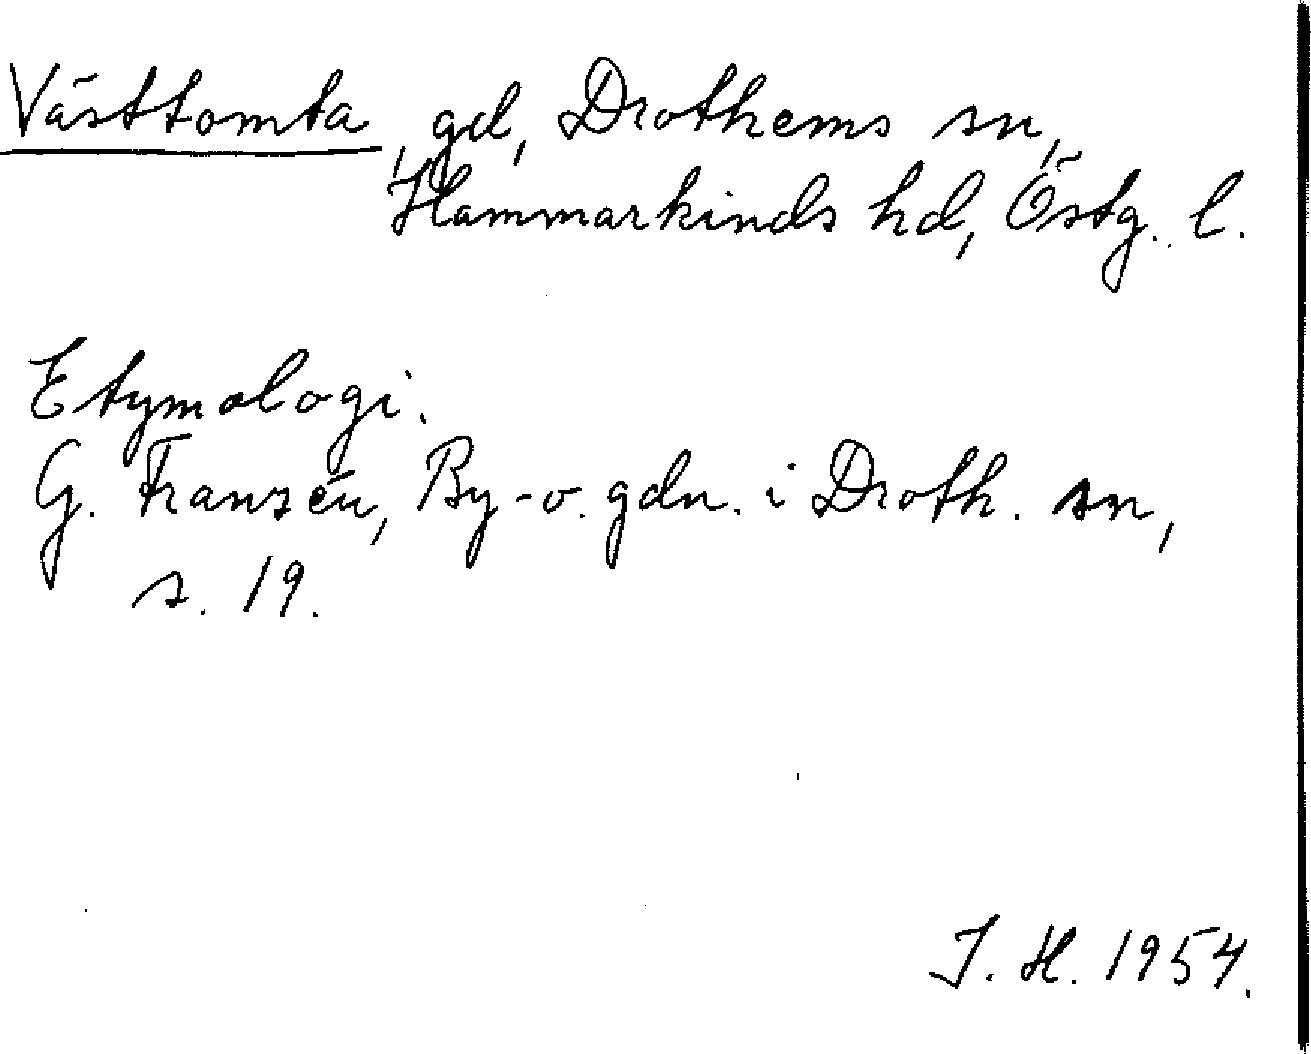 Västtomta, gd, Drothems sn,
Hammarkinds hd, Östg. l.
Etymologi.
G. Franzén, By- o. gdn. i Droth. sn,
s. 19.
J. H. 1954.